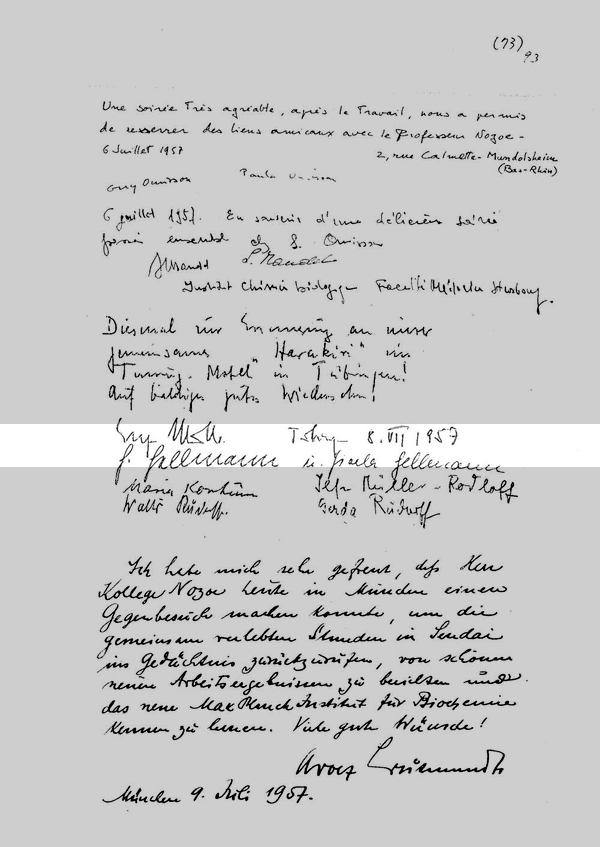 (73)
93
Une soirée très agréable, après le travail, nous a permis
de resserrer des liens amicaux avec le Professeur Nozoe -
6 Juillet 1957
2, rue Calmette - Mundolsheim
(Bas-Rhin)
Guy Ourisson
Paula Ourisson
6 juillet 1957. En souvenir d'une délicieuse soirée
passée ensemble chez G. Ourisson
P. Mandel
Institut Chimie biologique Faculté Médecine Strasbourg.
Diesmal zur Erinnerung an unser
gemeinsames "Harakiri" im
Touring-Motel in Tübingen!
Auf baldiges gutes Wiedersehn!
Eug. Müller. Tübingen 8. VII 1957
G. Hellmann u. Gisela Hellmann
Maria Ilse Müller-Rodloff
Walter Rüdorff. Gerda Rüdorff
Ich habe mich sehr gefreut, daß Herr
Kollege Nozoe heute in München einen
Gegenbesuch machen konnte, um die
gemeinsam verlebten Stunden in Sendai
ins Gedächtnis zurückzurufen, von schönen
neuen Arbeitsergebnissen zu berichten und
das neue Max Planck Institut für Biochemie
kennen zu lernen. Viele gute Wünsche!
Adolf
München 9. Juli 1957.